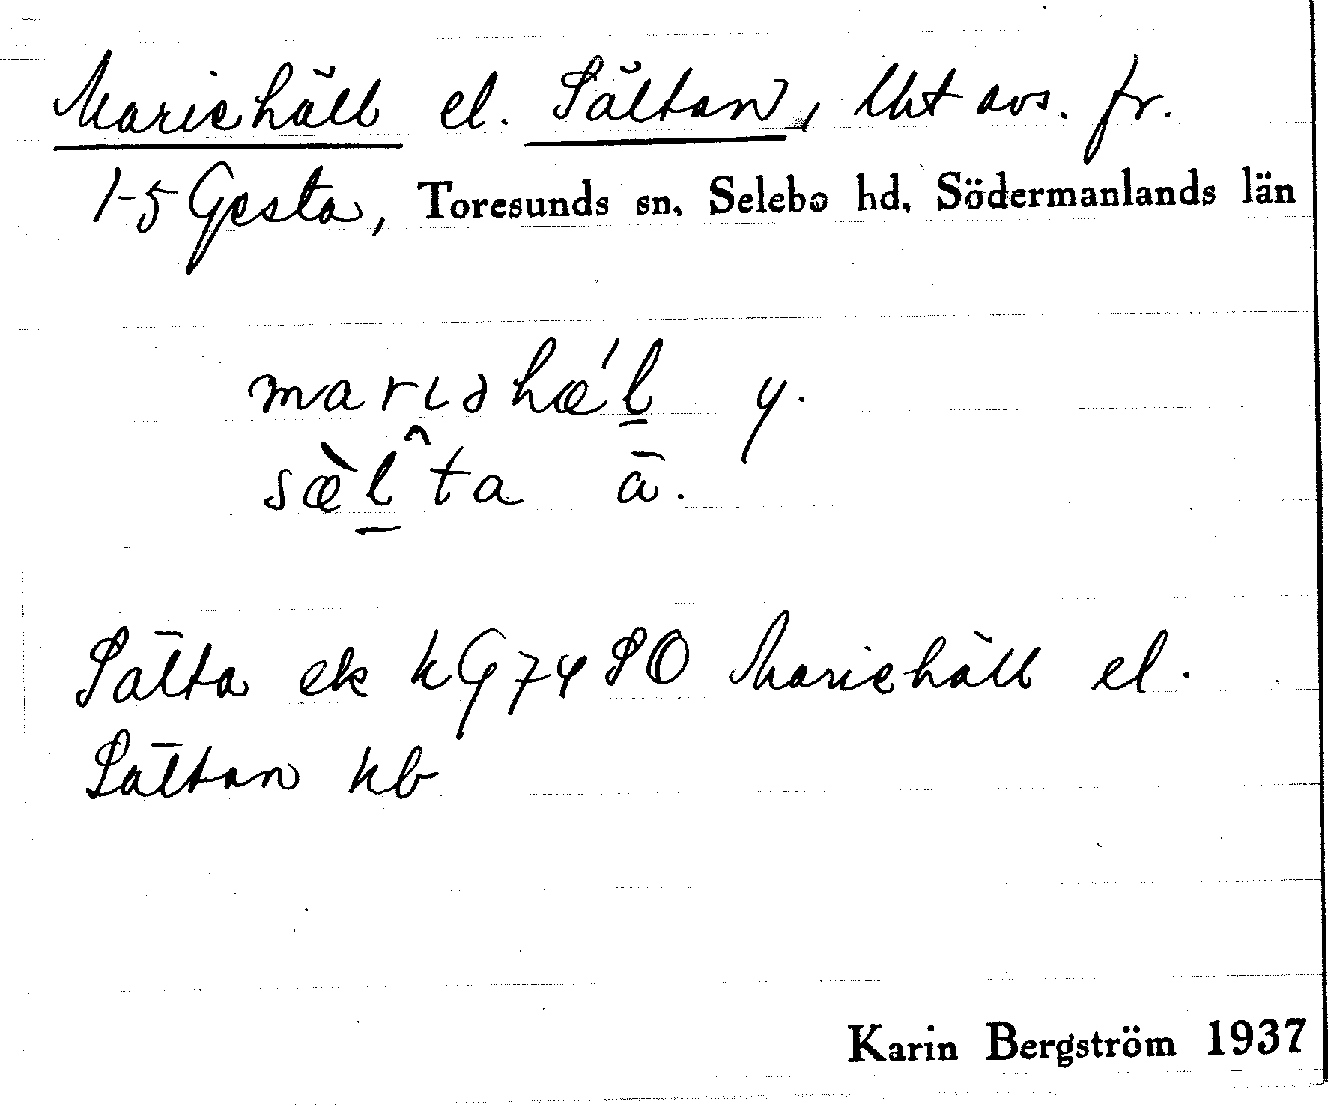 Mariehäll el. Sältan, lht avs. fr.
1-5 Gesta, Toresunds sn. Selebo hd. Södermanlands län
marıəhæ´l y.
sæ̀l̂ta ä.
Sälta ek kG74 SO Mariehäll el.
Sältan kb
Karin Bergström 1937